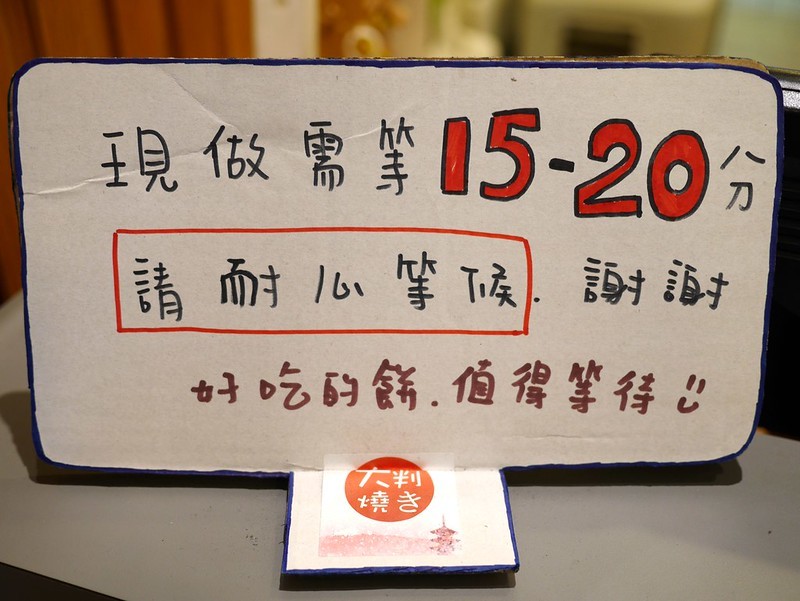 現做需等15-20分
請耐心等候.謝謝
好吃的餅.值得等待
大判
燒き